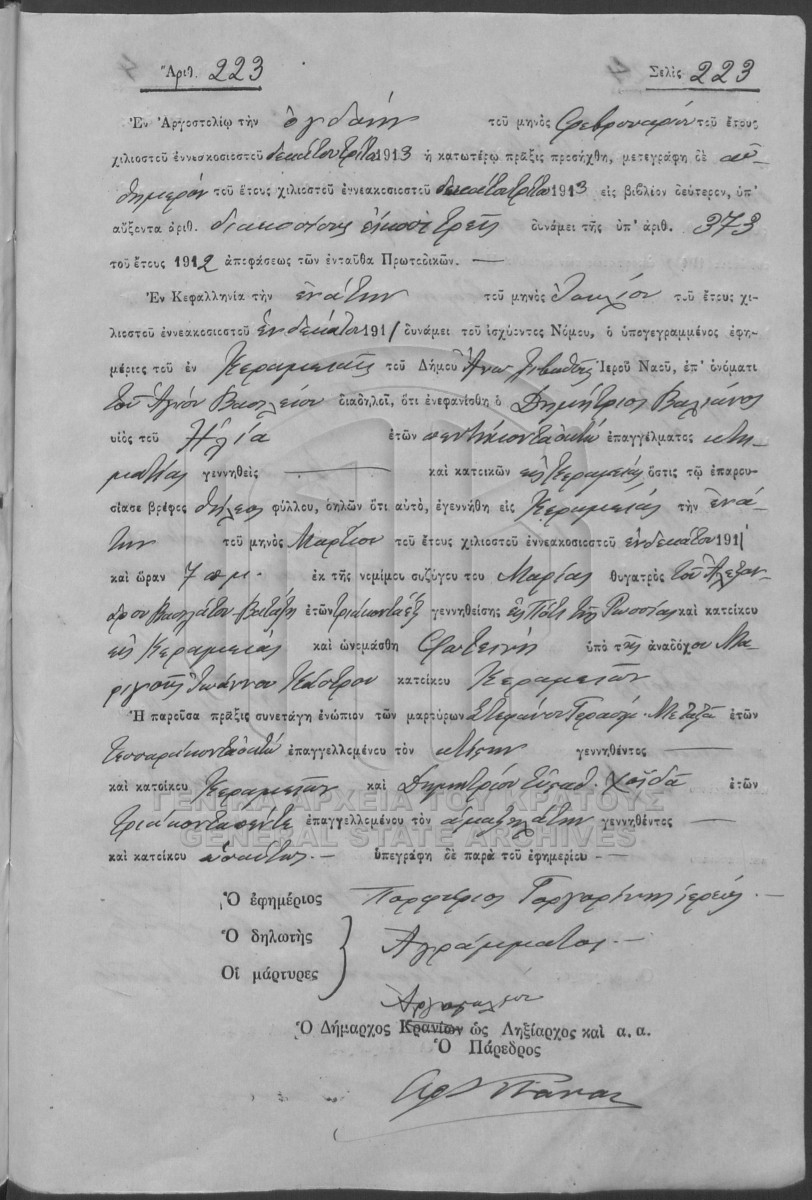 Ἀριθ. 223 Σελὶς 223
Ἐν Ἀργοστολίῳ τὴν ὀγδόην τοῦ μηνὸς Φεβρουαρίου τοῦ ἔτους
χιλιοστοῦ ἐννεακοσιοστοῦ δεκάτου τρίτου 1913 ἡ κατωτέρω πρᾶξις προσήχθη, μετεγράφη δὲ αὐ-
θημερὸν τοῦ ἔτους χιλιοστοῦ ἐννεακοσιοστοῦ δεκάτου τρίτου 1913 εἰς βιβλίον δεύτερον, ὑπ'
αὔξοντα ἀριθ. διακοσίους εἴκοσι τρεῖς δυνάμει τῆς ὑπ' ἀριθ. 373
τοῦ ἔτους 1912 ἀποφάσεως τῶν ἐνταῦθα Πρωτοδικῶν. —
Ἐν Κεφαλληνίᾳ τὴν ἐνάτην τοῦ μηνὸς Ἰουλίου τοῦ ἔτους χι-
λιοστοῦ ἐννεακοσιοστοῦ ἑνδεκάτου 1911 δυνάμει τοῦ ἰσχύοντος Νόμου, ὁ ὑπογεγραμμένος ἐφη-
μέριος τοῦ ἐν Κεραμειαῖς τοῦ Δήμου Ἄνω Λειβαθοῦς Ἱεροῦ Ναοῦ, ἐπ' ὀνόματι
τοῦ Ἁγίου Βασιλείου διαδηλοῖ, ὅτι ἐνεφανίσθη ὁ Δημήτριος Βαλιάνος
υἱὸς τοῦ Ἠλία ἐτῶν πεντήκοντα ὀκτὼ ἐπαγγέλματος κτη-
ματίας γεννηθεὶς — καὶ κατοικῶν εἰς Κεραμειὰς ὅστις τῷ ἐπαρου-
σίασε βρέφος θήλεος φύλλου, δηλῶν ὅτι αὐτό, ἐγεννήθη εἰς Κεραμειὰς τὴν ἐνά-
την τοῦ μηνὸς Μαρτίου τοῦ ἔτους χιλιοστοῦ ἐννεακοσιοστοῦ ἑνδεκάτου 1911
καὶ ὥραν 7 π.μ. ἐκ τῆς νομίμου συζύγου του Μαρίας θυγατρὸς τοῦ Ἀλεξάν-
δρου ἐτῶν τριάκοντα ἓξ γεννηθείσης εἰς Πότι τῆς Ρωσσίας καὶ κατοίκου
εἰς Κεραμειὰς καὶ ὠνομάσθη Φωτεινὴ ὑπὸ τῆς ἀναδόχου Μα-
ριγὼς Ἰωάννου Κάστρου κατοίκου Κεραμειῶν
Ἡ παροῦσα πρᾶξις συνετάγη ἐνώπιον τῶν μαρτύρων Στεφάνου Γερασίμ. Μεταξᾶ ἐτῶν
τεσσαράκοντα ὀκτὼ ἐπαγγελλομένου τὸν κτίστην γεννηθέντος —
καὶ κατοίκου Κεραμειῶν καὶ Δημητρίου Εὐσταθ. Χοϊδᾶ ἐτῶν
τριάκοντα πέντε ἐπαγγελλομένου τὸν ἁμαξηλάτην γεννηθέντος —
καὶ κατοίκου ὡσαύτως — ὑπεγράφη δὲ παρὰ τοῦ ἐφημερίου —
ΓΕΝΙΚΑ ΑΡΧΕΙΑ ΤΟΥ ΚΡΑΤΟΥΣ
GENERAL STATE ARCHIVES
Ὁ ἐφημέριος Πορφύριος ἱερεύς. —
Ὁ δηλωτὴς
Ἀγράμματοι —
Οἱ μάρτυρες
Ἀργοστολίου
Ὁ Δήμαρχος Κρανίων ὡς Ληξίαρχος καὶ α. α.
Ὁ Πάρεδρος